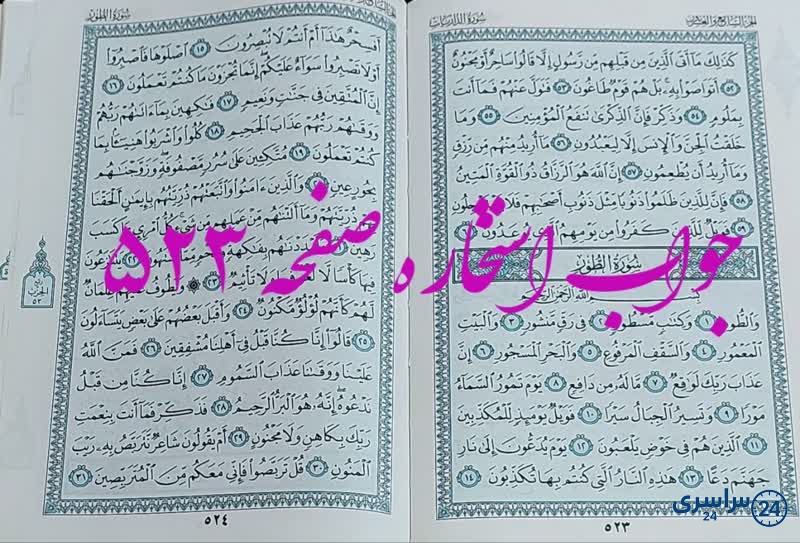 الجزء السابع والعشرون
سورة الذاريات
كَذَٰلِكَ مَآ أَتَى ٱلَّذِينَ مِن قَبْلِهِم مِّن رَّسُولٍ إِلَّا قَالُوا۟ سَاحِرٌ أَوْ مَجْنُونٌ
﴿٥٢﴾ أَتَوَاصَوْا۟ بِهِۦ بَلْ هُمْ قَوْمٌ طَاغُونَ ﴿٥٣﴾ فَتَوَلَّ عَنْهُمْ فَمَآ أَنتَ
بِمَلُومٍ ﴿٥٤﴾ وَذَكِّرْ فَإِنَّ ٱلذِّكْرَىٰ تَنفَعُ ٱلْمُؤْمِنِينَ ﴿٥٥﴾ وَمَا
خَلَقْتُ ٱلْجِنَّ وَٱلْإِنسَ إِلَّا لِيَعْبُدُونِ ﴿٥٦﴾ مَآ أُرِيدُ مِنْهُم مِّن رِّزْقٍ
وَمَآ أُرِيدُ أَن يُطْعِمُونِ ﴿٥٧﴾ إِنَّ ٱللَّهَ هُوَ ٱلرَّزَّاقُ ذُو ٱلْقُوَّةِ ٱلْمَتِينُ
﴿٥٨﴾ فَإِنَّ لِلَّذِينَ ظَلَمُوا۟ ذَنُوبًا مِّثْلَ ذَنُوبِ أَصْحَٰبِهِمْ فَلَا
﴿٥٩﴾ فَوَيْلٌ لِّلَّذِينَ كَفَرُوا۟ مِن يَوْمِهِمُ
سُورَةُ الطُّورِ
بِسْمِ ٱللَّهِ ٱلرَّحْمَٰنِ ٱلرَّحِيمِ
وَٱلطُّورِ ﴿١﴾ وَكِتَٰبٍ مَّسْطُورٍ ﴿٢﴾ فِى رَقٍّ مَّنشُورٍ ﴿٣﴾ وَٱلْبَيْتِ
ٱلْمَعْمُورِ ﴿٤﴾ وَٱلسَّقْفِ ٱلْمَرْفُوعِ ﴿٥﴾ وَٱلْبَحْرِ ٱلْمَسْجُورِ ﴿٦﴾ إِنَّ
عَذَابَ رَبِّكَ لَوَٰقِعٌ ﴿٧﴾ مَّا لَهُۥ مِن دَافِعٍ ﴿٨﴾ يَوْمَ تَمُورُ ٱلسَّمَآءُ
مَوْرًا ﴿٩﴾ وَتَسِيرُ ٱلْجِبَالُ سَيْرًا ﴿١٠﴾ فَوَيْلٌ يَوْمَئِذٍ لِّلْمُكَذِّبِينَ
﴿١١﴾ ٱلَّذِينَ هُمْ فِى خَوْضٍ يَلْعَبُونَ ﴿١٢﴾ يَوْمَ يُدَعُّونَ إِلَىٰ نَارِ
جَهَنَّمَ دَعًّا ﴿١٣﴾ هَٰذِهِ ٱلنَّارُ ٱلَّتِى كُنتُم بِهَا تُكَذِّبُونَ ﴿١٤﴾
٥٢٣
سورة الطور
أَفَسِحْرٌ هَٰذَآ أَمْ أَنتُمْ لَا تُبْصِرُونَ ﴿١٥﴾ ٱصْلَوْهَا فَٱصْبِرُوٓا۟
أَوْ لَا تَصْبِرُوا۟ سَوَآءٌ عَلَيْكُمْ إِنَّمَا تُجْزَوْنَ مَا كُنتُمْ تَعْمَلُونَ ﴿١٦﴾
إِنَّ ٱلْمُتَّقِينَ فِى جَنَّٰتٍ وَنَعِيمٍ ﴿١٧﴾ فَٰكِهِينَ بِمَآ ءَاتَىٰهُمْ رَبُّهُمْ
وَوَقَىٰهُمْ رَبُّهُمْ عَذَابَ ٱلْجَحِيمِ ﴿١٨﴾ كُلُوا۟ وَٱشْرَبُوا۟ هَنِيٓـًٔۢا بِمَا
كُنتُمْ تَعْمَلُونَ ﴿١٩﴾ مُتَّكِـِٔينَ عَلَىٰ سُرُرٍ مَّصْفُوفَةٍ وَزَوَّجْنَٰهُم
بِحُورٍ عِينٍ ﴿٢٠﴾ وَٱلَّذِينَ ءَامَنُوا۟ وَٱتَّبَعَتْهُمْ ذُرِّيَّتُهُم بِإِيمَٰنٍ أَلْحَقْنَا
بِهِمْ ذُرِّيَّتَهُمْ وَمَآ أَلَتْنَٰهُم مِّنْ عَمَلِهِم مِّن شَىْءٍ كُلُّ ٱمْرِئٍۭ بِمَا كَسَبَ
رَهِينٌ وَأَمْدَدْنَٰهُم بِفَٰكِهَةٍ وَلَحْمٍ مِّمَّا يَشْتَهُونَ ﴿٢٢﴾ يَتَنَٰزَعُونَ
فِيهَا كَأْسًا لَّا لَغْوٌ فِيهَا وَلَا تَأْثِيمٌ ﴿٢٣﴾ وَيَطُوفُ عَلَيْهِمْ غِلْمَانٌ
لَّهُمْ كَأَنَّهُمْ لُؤْلُؤٌ مَّكْنُونٌ ﴿٢٤﴾ وَأَقْبَلَ بَعْضُهُمْ عَلَىٰ بَعْضٍ يَتَسَآءَلُونَ
﴿٢٥﴾ قَالُوٓا۟ إِنَّا كُنَّا قَبْلُ فِىٓ أَهْلِنَا مُشْفِقِينَ ﴿٢٦﴾ فَمَنَّ ٱللَّهُ
عَلَيْنَا وَوَقَىٰنَا عَذَابَ ٱلسَّمُومِ ﴿٢٧﴾ إِنَّا كُنَّا مِن قَبْلُ
نَدْعُوهُ إِنَّهُۥ هُوَ ٱلْبَرُّ ٱلرَّحِيمُ ﴿٢٨﴾ فَذَكِّرْ فَمَآ أَنتَ بِنِعْمَتِ
رَبِّكَ بِكَاهِنٍ وَلَا مَجْنُونٍ ﴿٢٩﴾ أَمْ يَقُولُونَ شَاعِرٌ نَّتَرَبَّصُ بِهِۦ رَيْبَ
ٱلْمَنُونِ ﴿٣٠﴾ قُلْ تَرَبَّصُوا۟ فَإِنِّى مَعَكُم مِّنَ ٱلْمُتَرَبِّصِينَ ﴿٣١﴾
٥٢٤
جواب استخاره صفحه ۵۲۳
سراسری
24
24